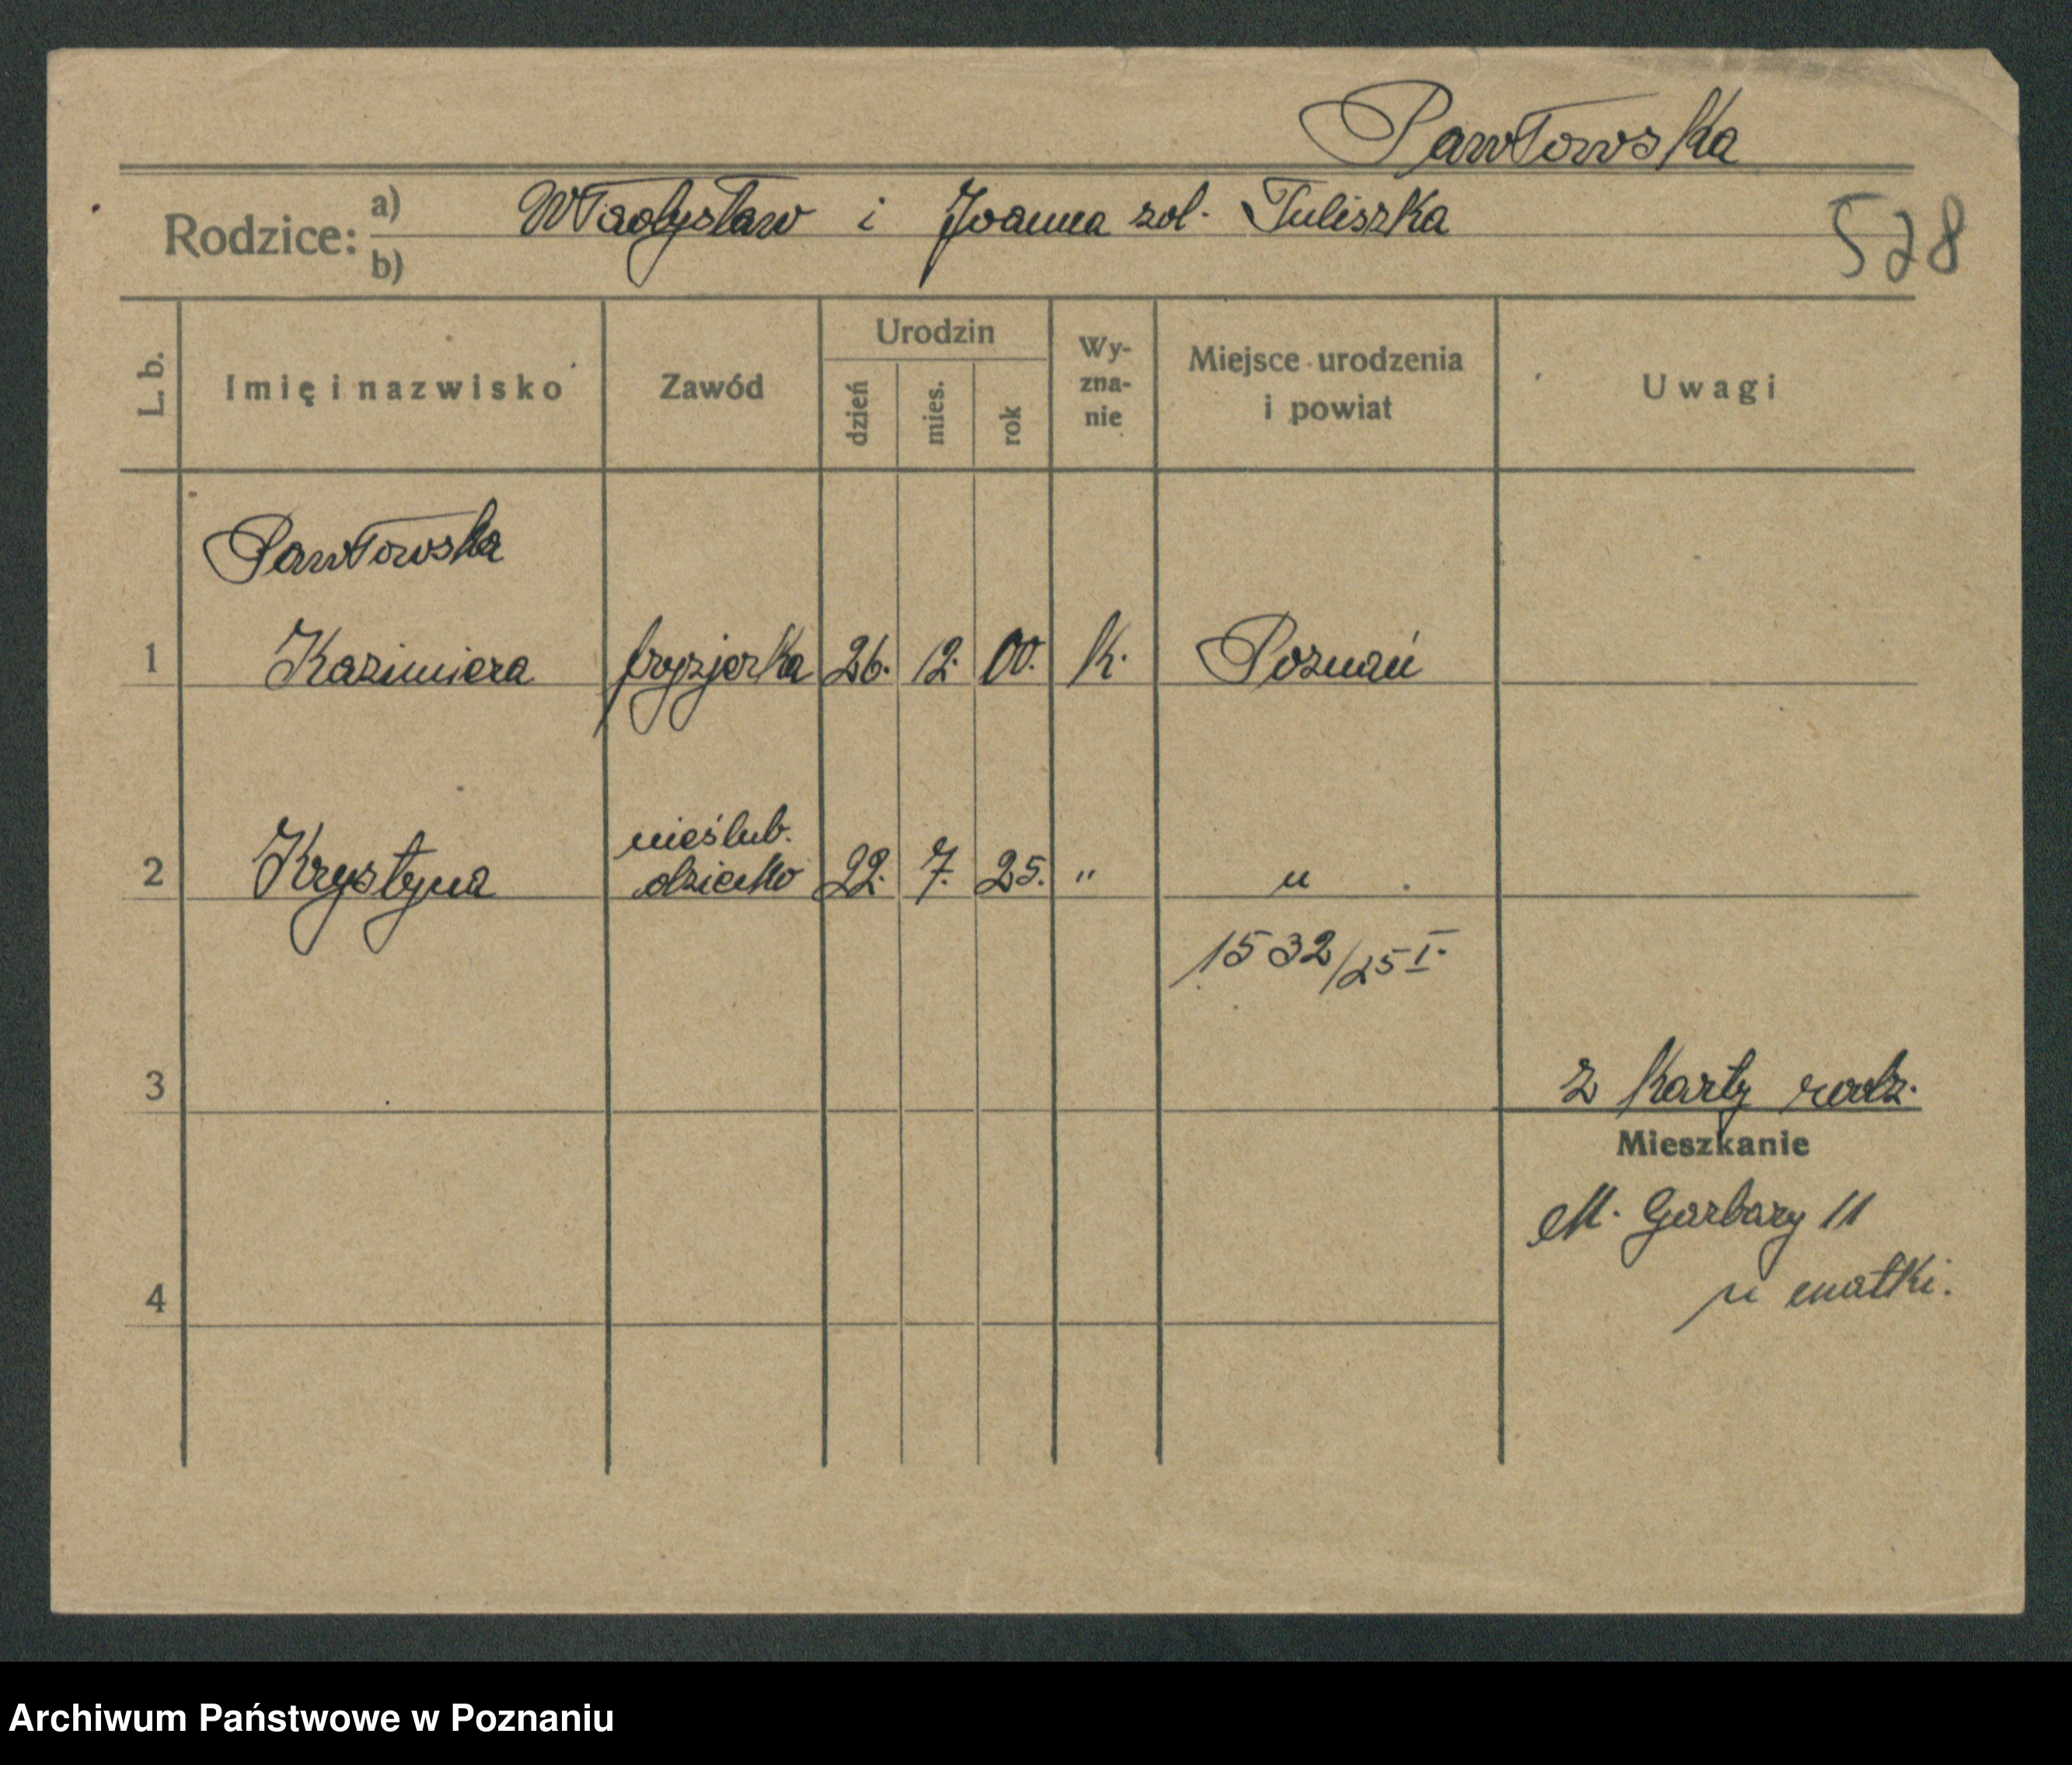 Pawłowska
Rodzice: a) Władysław i Joanna zol. Tuliszka
b)
528
L. b. Imię i nazwisko Zawód Urodzin dzień mies. rok Wy-zna-nie Miejsce urodzenia i powiat Uwagi
Pawłowska
1 Kazimiera fryzjerka 26. 12. 00. K. Poznań
nieślub.
2 Krystyna dziecko 22. 7. 25. " "
1532/25 I.
3 z Karty rodz.
Mieszkanie
M. Garbary 11
u matki.
4
Archiwum Państwowe w Poznaniu